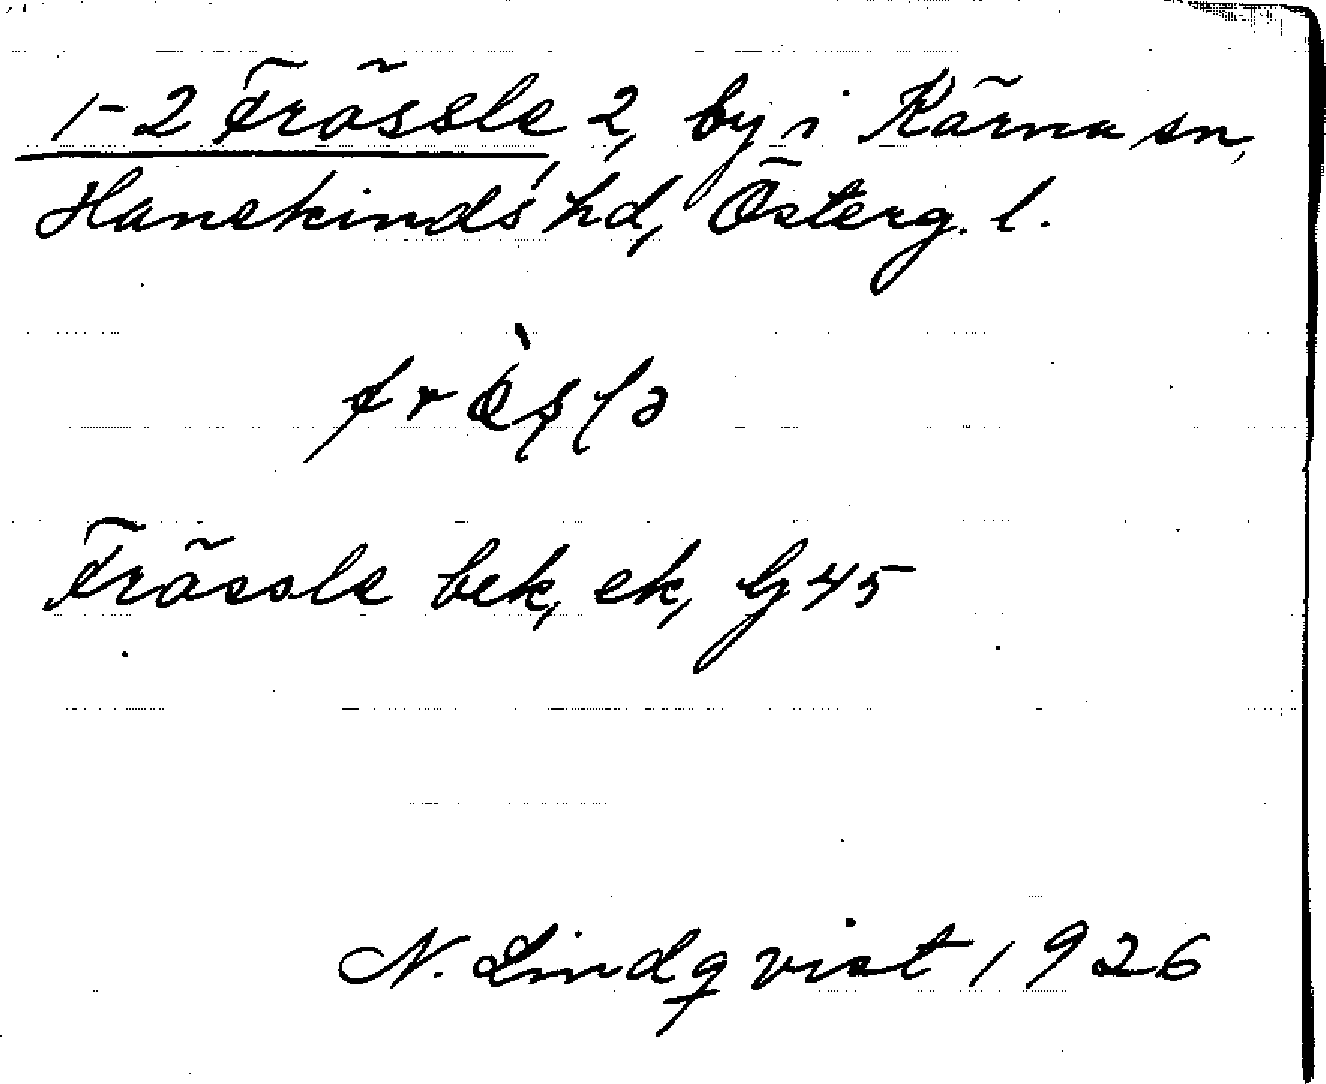 1-2 Frössle, 2, by i Kärna sn,
Hanekinds hd, Österg. l.
Frössle bek, ek, Gj 45
N. Lindqvist 1926